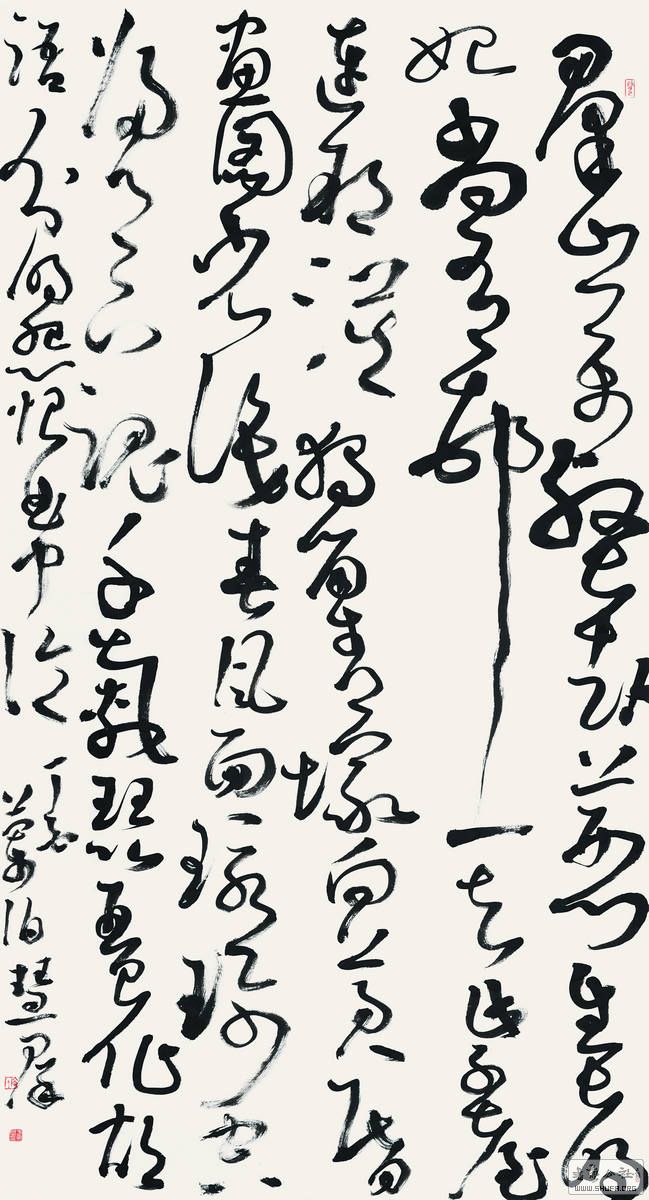 羣山万壑赴荆门生长明
妃尚有村一去紫台
连朔漠独留青冢向黄昏
画图省识春风面环珮空
归魂千载琵琶作胡
语分明怨恨曲中论
慧群